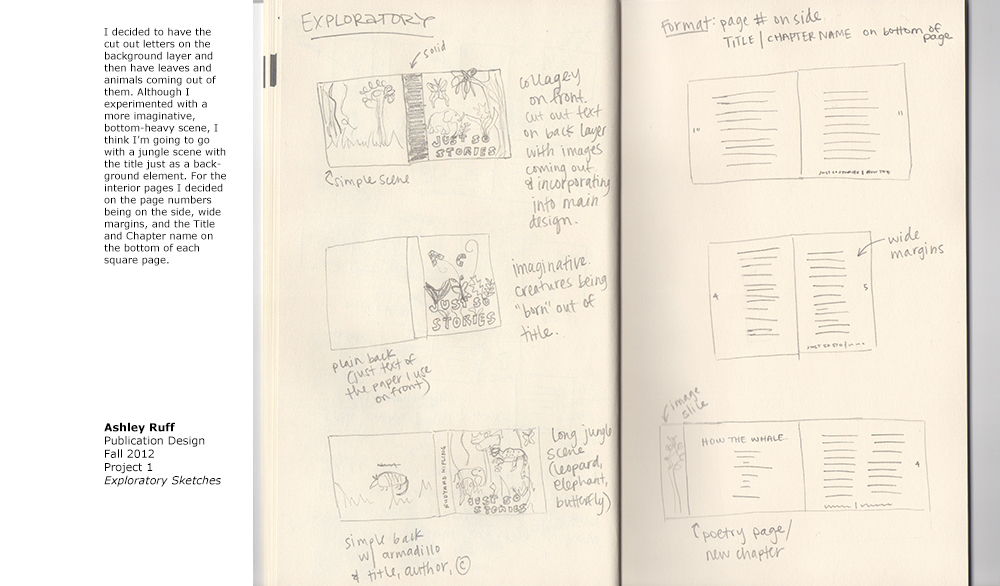 I decided to have the
cut out letters on the
background layer and
then have leaves and
animals coming out of
them. Although I
experimented with a
more imaginative,
bottom-heavy scene, I
think I'm going to go
with a jungle scene with
the title just as a back-
ground element. For the
interior pages I decided
on the page numbers
being on the side, wide
margins, and the Title
and Chapter name on
the bottom of each
square page.
Ashley Ruff
Publication Design
Fall 2012
Project 1
Exploratory Sketches
EXPLORATORY
solid
JUST SO
STORIES
simple scene
collagey
on front.
cut out text
on back layer
with images
coming out
& incorporating
into main
design.
JUST SO
STORIES
imaginative.
creatures being
"born" out of
title.
plain back
(just text of
the paper I use
on front)
RUDYARD KIPLING
JUST SO
STORIES
long jungle
scene
(leopard,
elephant,
butterfly)
simple back
w/ armadillo
& title, author, ©
Format: page # on side.
TITLE | CHAPTER NAME on bottom of
page
10
11
JUST SO STORIES
4
5
JUST SO STO
wide
margins
image
slice
HOW THE WHALE.
9
poetry page/
new chapter